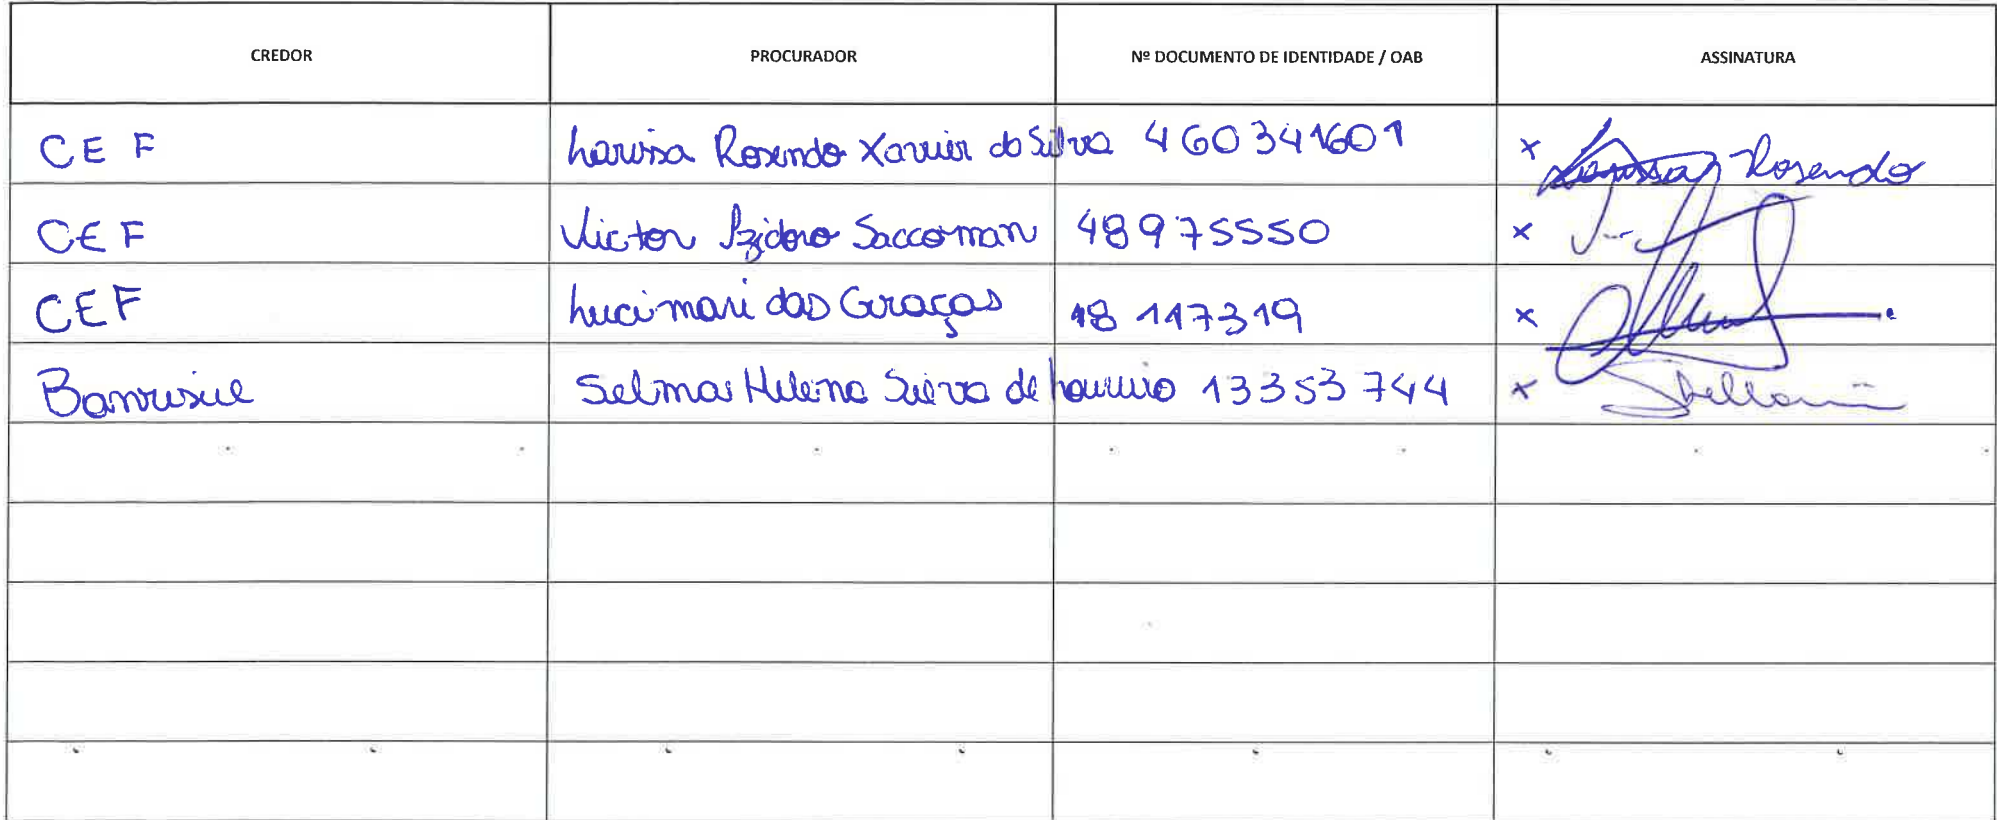 CREDOR PROCURADOR Nº DOCUMENTO DE IDENTIDADE / OAB ASSINATURA
CEF Larissa Rosendo Xavier da Silva 460341601 x Larissa Rosendo
CEF Victor Izidoro Saccoman 48975550 x
CEF Lucimari das Graças 18147319 x
Banrisul Selma Helena Silva de 13353744 x